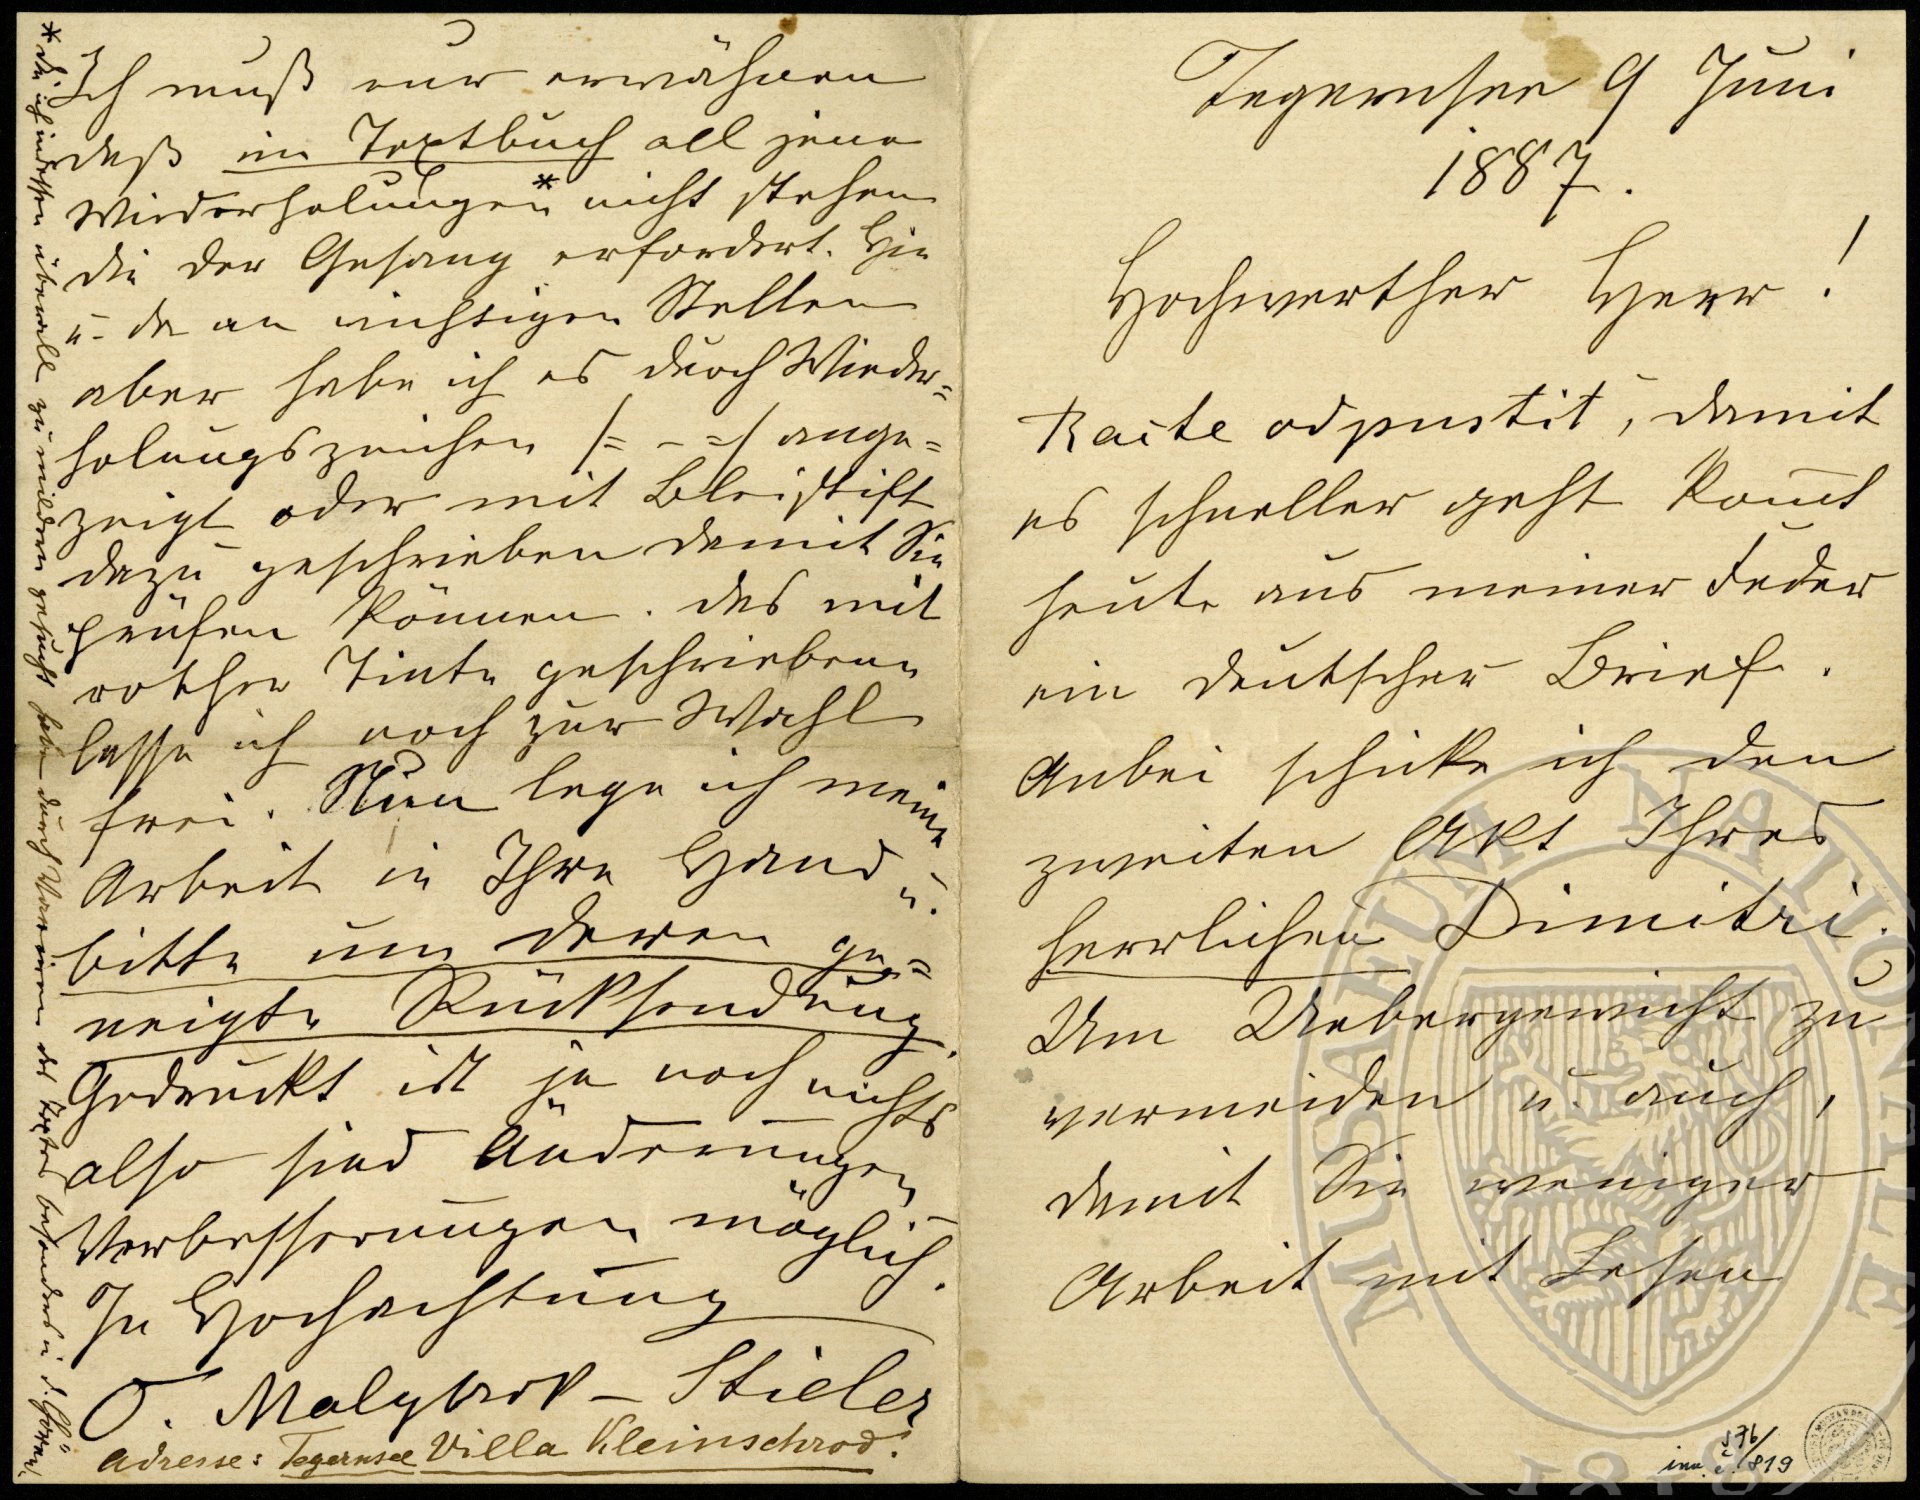 Tegernsee 9 Juni
1887.
Hochwerther Herr!
Racte odpustit, damit
es schneller geht kom̄t
heute aus meiner Feder
ein deutscher Brief.
Anbei schicke ich den
zweiten Akt Ihres
herrlichen Dimitri.
Um Uebergewicht zu
vermeiden u. auch,
damit Sie weniger
Arbeit mit Lesen
Ich muß nur erwähnen
daß im Textbuch all jene
Wiederholungen* nicht stehen
die der Gesang erfordert. Hie
u. da an wichtigen Stellen
aber habe ich es durch Wieder=
holungszeichen /= – =/ ange=
zeigt oder mit Bleistift
dazu geschrieben damit Sie
prüfen können. Das mit
rother Tinte geschriebene
lasse ich noch zur Wahl
frei. Nun lege ich meine
Arbeit in Ihre Hand u.
bitte um deren ge=
neigte Rücksendung.
Gedruckt ist ja noch nichts
also sind Änderungen,
Verbesserungen möglich.
In Hochachtung
O. Malybrok – Stieler
Adresse: Tegernsee Villa Kleinschrod.
* die ich indessen überall zu mildern gesucht habe durch Variiren des Textes besonders i. d. Chören.
MUSAEUM NATIONALE
1818
J 76/
inv. č. /819